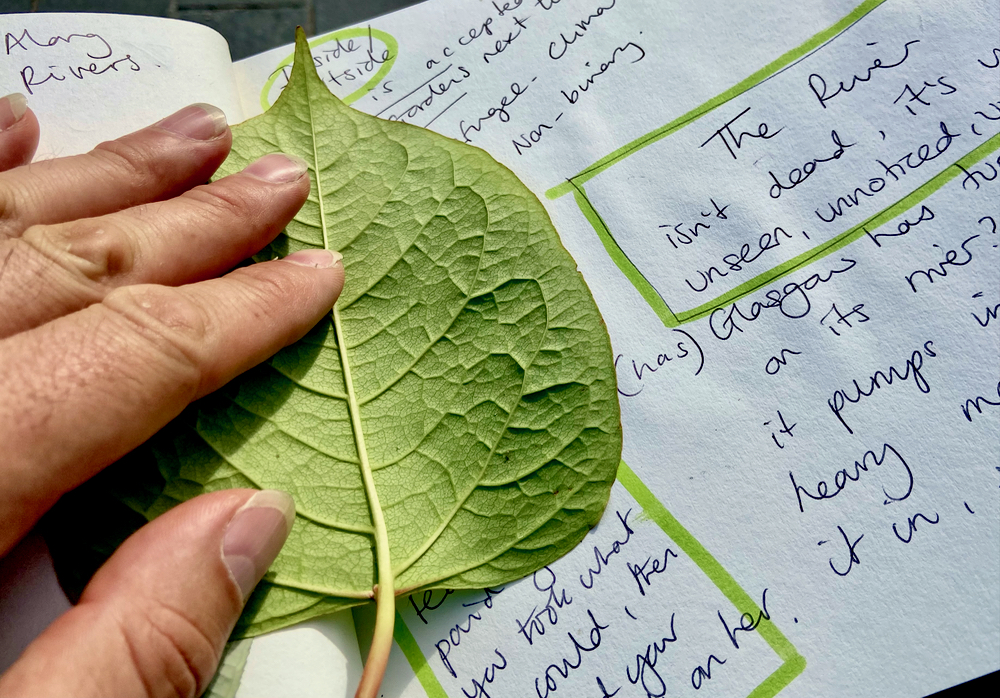 Along
Rivers.
Inside/
is accepted
borders next to
refugee - clima
Non-binary.
The River
isn't dead, it's u
unseen, unnoticed, u
(has) Glasgow has tur
on its river?
it pumps in
heavy me
it in,
paid
you took what
could, then
your
on her.